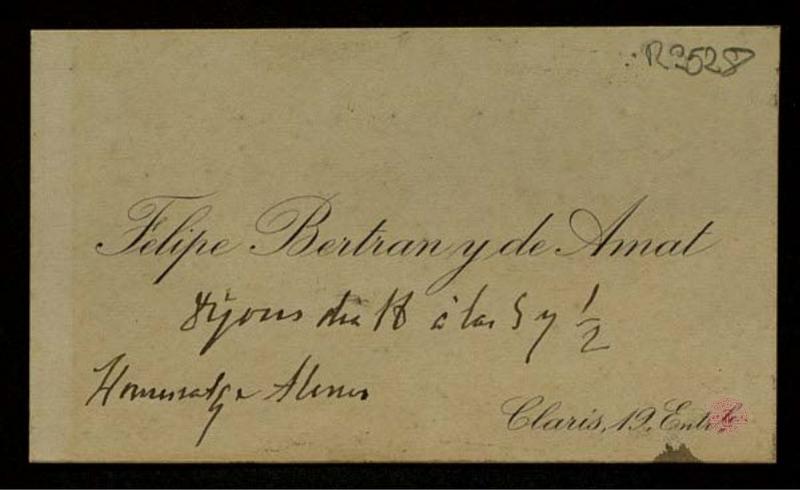 R.2528
Felipe Bertran y de Amat
dijous dia 18 á las 5 y 1/2
Homenatge
Claris, 19, Entlo